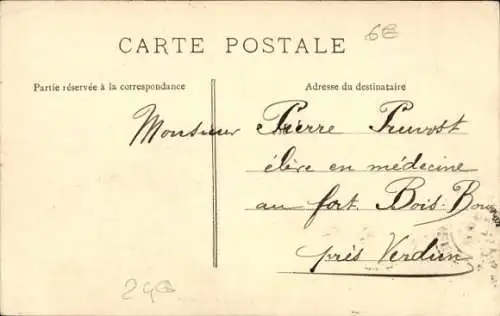 6€
CARTE POSTALE
Partie réservée à la correspondance
Adresse du destinataire
Monsieur Pierre Pruvost
élève en médecine
au fort Bois-Bour
près Verdun